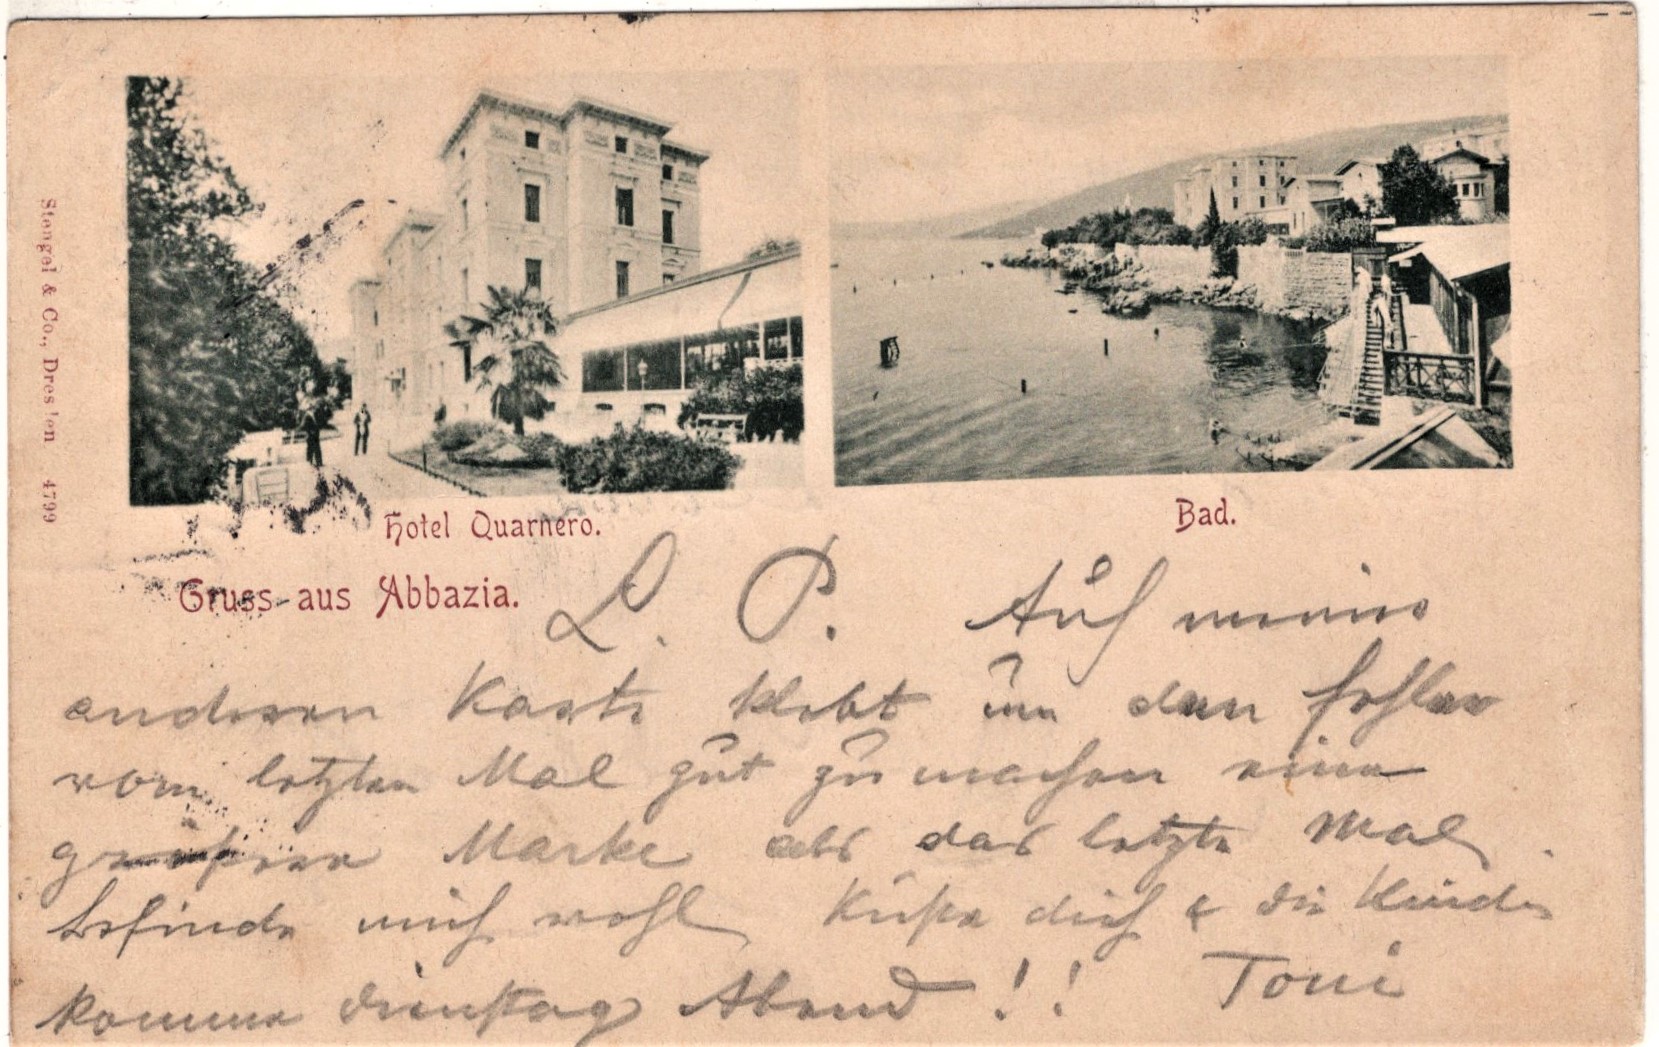 Stengel & Co., Dresden 4799
Hotel Quarnero.
Bad.
Gruss aus Abbazia.
L. P. Auf meine
anderen Karte klebt um den Fehler
vom letzten Mal gut zu machen eine
größere Marke als das letzte Mal.
Befinde mich wohl Küße dich & die Kinder
komme Dienstag Abend !!
Toni